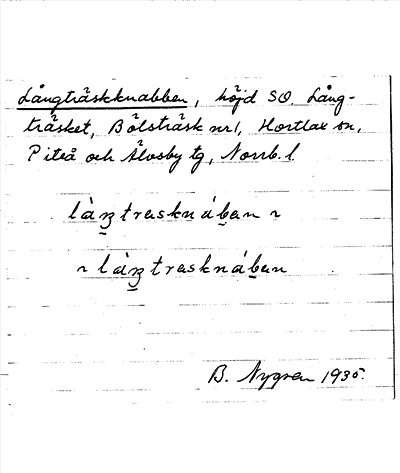 Långträskknabben, höjd SO. Lång-
träsket, Bölsträsk nr 1, Hortlax sn,
Piteå och Älvsby tg, Norrb. l.
làŋtrasknában ~
~ làŋtrasknában
B. Nygren 1935.